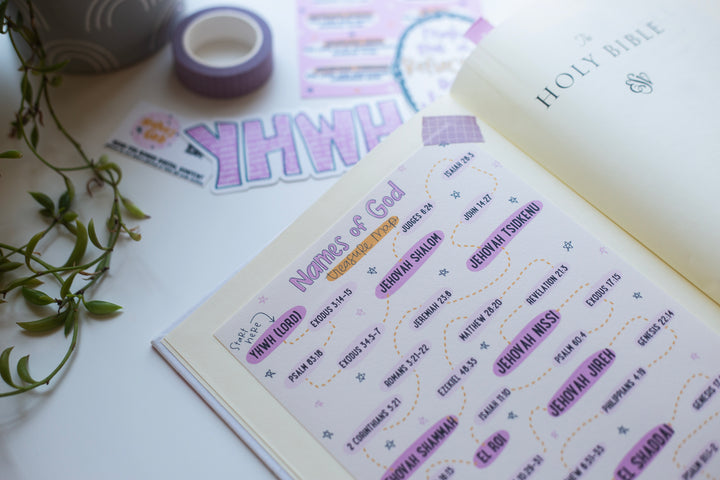 The
HOLY BIBLE
ESV
YHWH
Names of God
treasure map
Start
here
YHWH (LORD)
EXODUS 3:14-15
JUDGES 6:24
ISAIAH 26:3
PSALM 83:18
EXODUS 34:5-7
JEHOVAH SHALOM
JOHN 14:27
JEREMIAH 23:6
JEHOVAH TSIDKENU
2 CORINTHIANS 5:21
ROMANS 3:21-22
MATTHEW 28:20
REVELATION 21:3
JEHOVAH SHAMMAH
EZEKIEL 48:35
JEHOVAH NISSI
EXODUS 17:15
EL ROI
ISAIAH 11:10
PSALM 60:4
JEHOVAH JIREH
GENESIS 22:14
PHILIPPIANS 4:19
EL SHADDAI
GENESIS